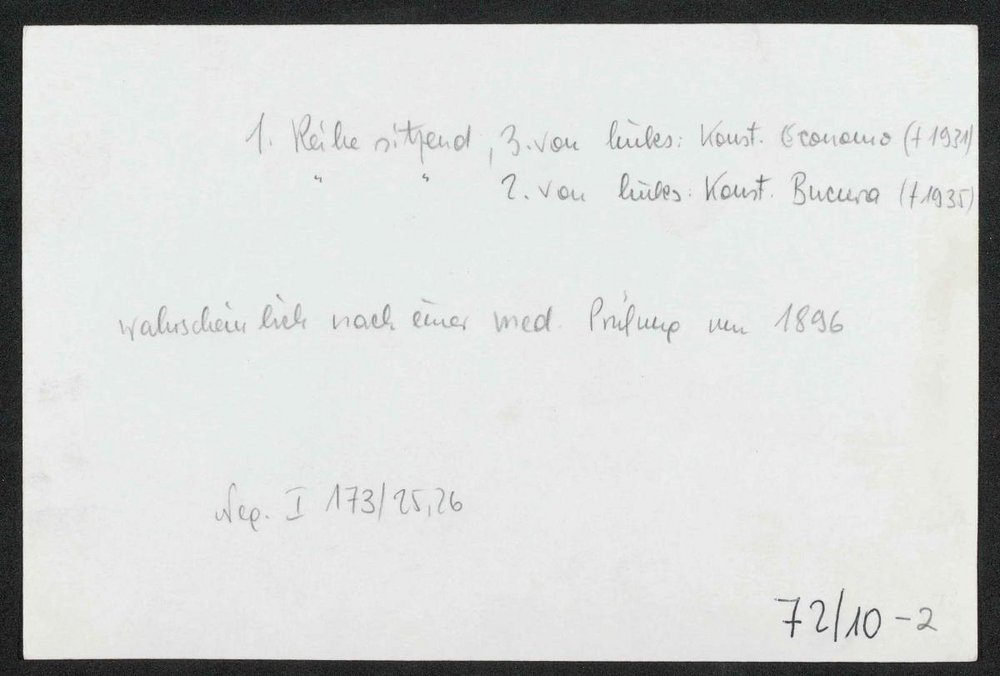 1. Reihe sitzend, 3. von links: Konst. Economo († 1931)
" " 2. von links: Konst. Bucura († 1935)
wahrscheinlich nach einer med. Prüfung um 1896
Neg. I 173/25,26
72/10-2